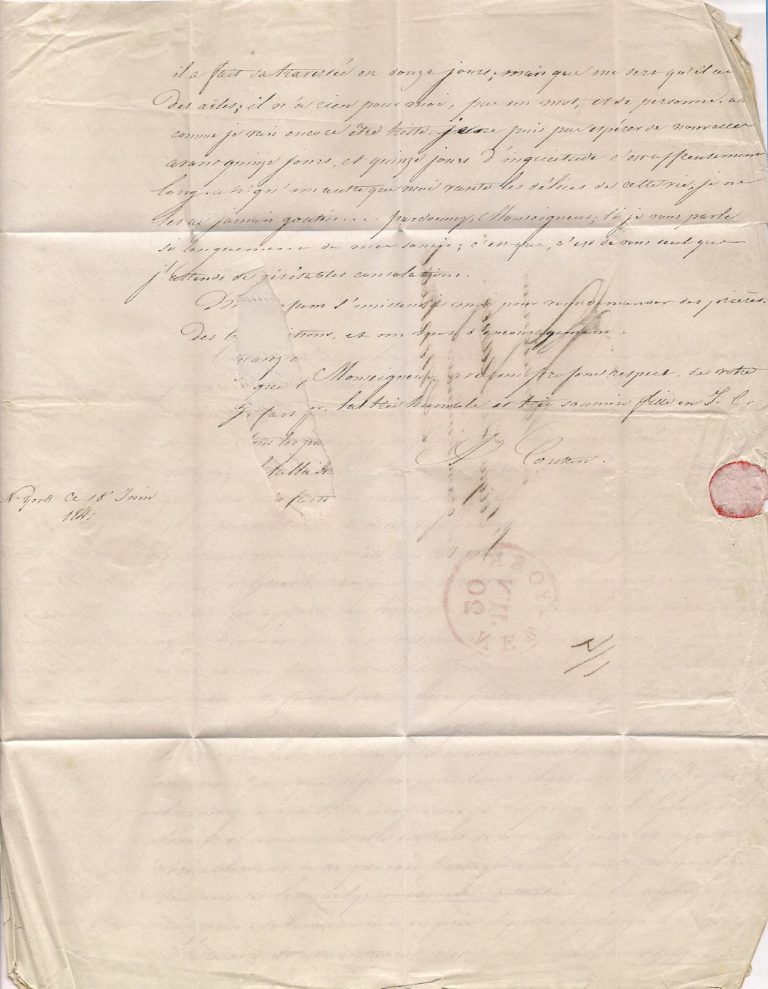 il a fait sa traversée en douze jours; mais que me sert qu'il ait
des ailes; il n'a rien pour moi, pas un mot, et de personne.
comme je vais encore être triste. je ne puis pas espérer de nouvelles
avant quinze jours, et quinze jours d'inquiétude c'est affreusement
long. ah! qu'un autre que moi vante les délices de cette vie, je ne
les ai jamais goutés.... pardonnez, Monseigneur, si je vous parle
si longuement de mes soucis; c'est que, c'est de vous seul que
j'attends de véritables consolations.
s'unissent à moi pour vous demander des prières.
des et un mot d'encouragement.
Monseigneur, avec un profond respect, de votre
la très humble et très soumise fille en J. C.
N-York ce 18 Juin
1841
20
JUN
NEW-YORK